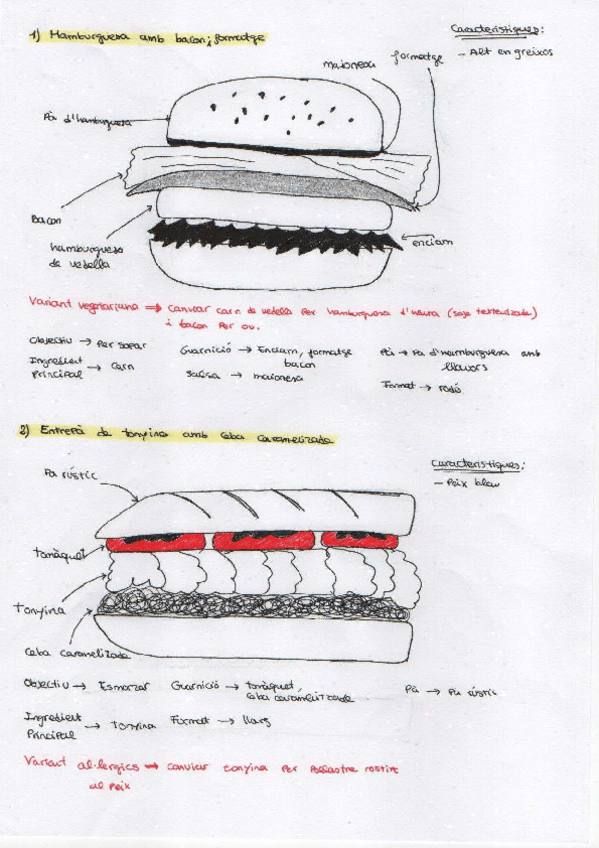 1) Hamburguesa amb bacon i formatge
Característiques:
- Alt en greixos
maionesa
formatge
Pà d'hamburguesa
Bacon
hamburguesa
de vedella
enciam
Variant vegetariana ⇒ Canviar carn de vedella per hamburguesa d'heura (soja texturitzada)
i bacon per ou.
Objectiu → Per sopar
Guarnició → Enciam, formatge
bacon
Pà → Pa d'hamburguesa amb
llavors
Ingredient
Principal → Carn
Salsa → maionesa
Format → rodó
2) Entrepà de tonyina amb ceba caramelitzada
Característiques:
- Peix blau
Pa rústic
tomàquet
Tonyina
Ceba caramelitzada
Objectiu → Esmorzar
Guarnició → tomàquet,
ceba caramelitzada
Pà → Pa rústic
Ingredient
Principal → Tonyina
Format → llarg
Variant al·lèrgics → canviar tonyina per pollastre rostit
al peix